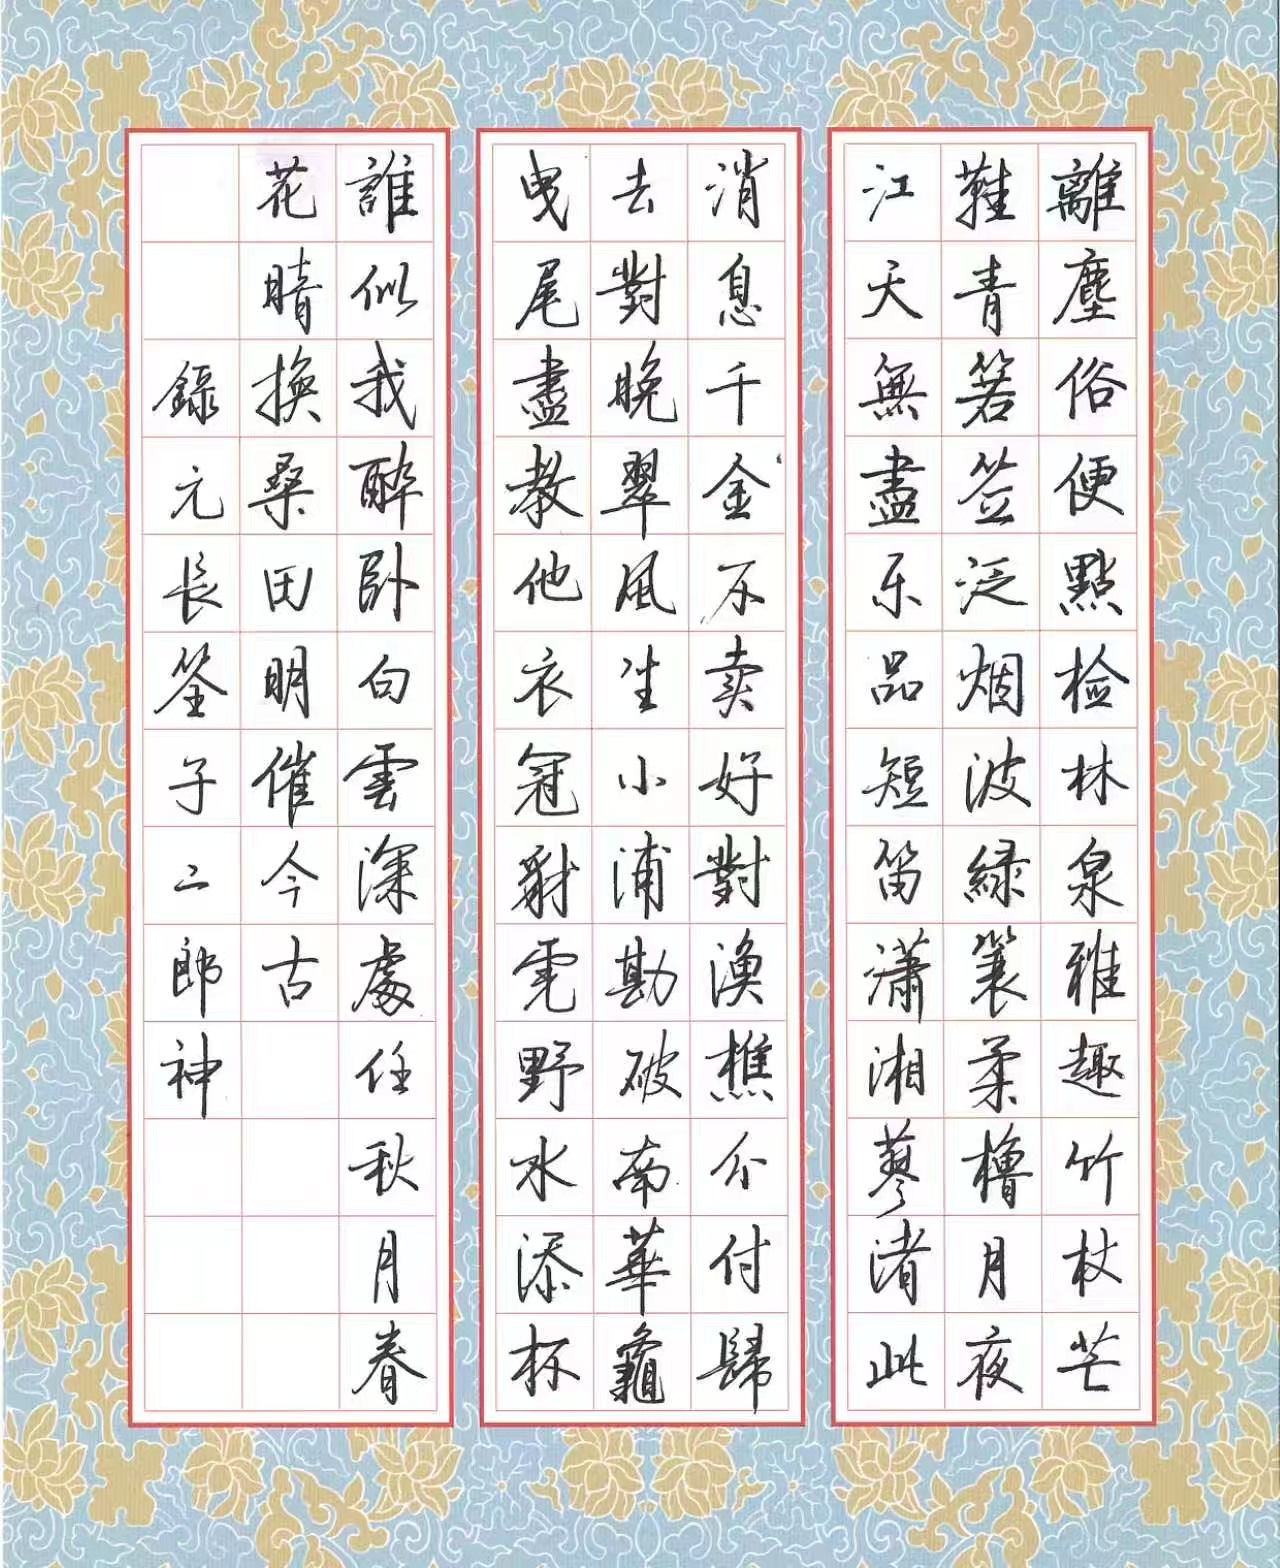 離塵俗便點检林泉雅趣竹杖芒
鞋青箬笠泛烟波緑蓑柔櫓月夜
江天無盡乐品短笛瀟湘蓼渚此
消息千金不卖好對漁樵分付歸
去對晚翠風生小浦勘破南華龜
曳尾盡教他衣冠豺虎野水添杯
誰似我醉卧白雲深處任秋月春
花暗換桑田明催今古
錄元長筌子二郎神